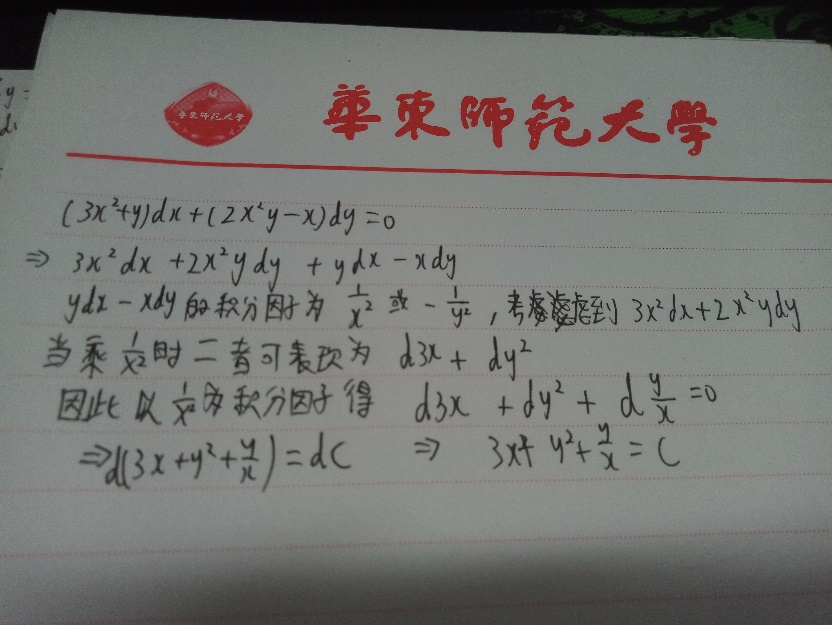 華東師范大學
華東師范大學
(3x²+y)dx+(2x²y-x)dy=0
⇒ 3x²dx+2x²ydy+ydx-xdy
ydx-xdy的积分因子为 1/x² 或 -1/y²,考虑到 3x²dx+2x²ydy
当乘 1/x² 时二者可表现为 d3x+dy²
因此以 1/x² 为积分因子得 d3x+dy²+d y/x =0
⇒d(3x+y²+y/x)=dC ⇒ 3x+y²+y/x=C
y=